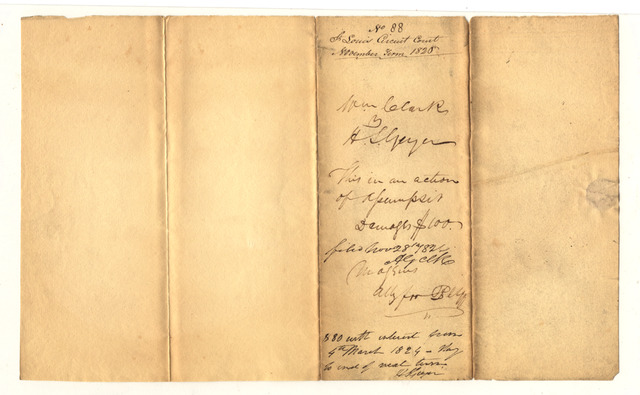 No 88
St Louis Circuit Court
November Term 1828
Wm Clark
v
H. S. Geyer
This is an action
of Assumpsit
Damages $100.
filed Nov 28th 182
Clk
Atty for Plff
$80 with interest from
4th March 1824 - Stay
to end of next term.
H S Geyer